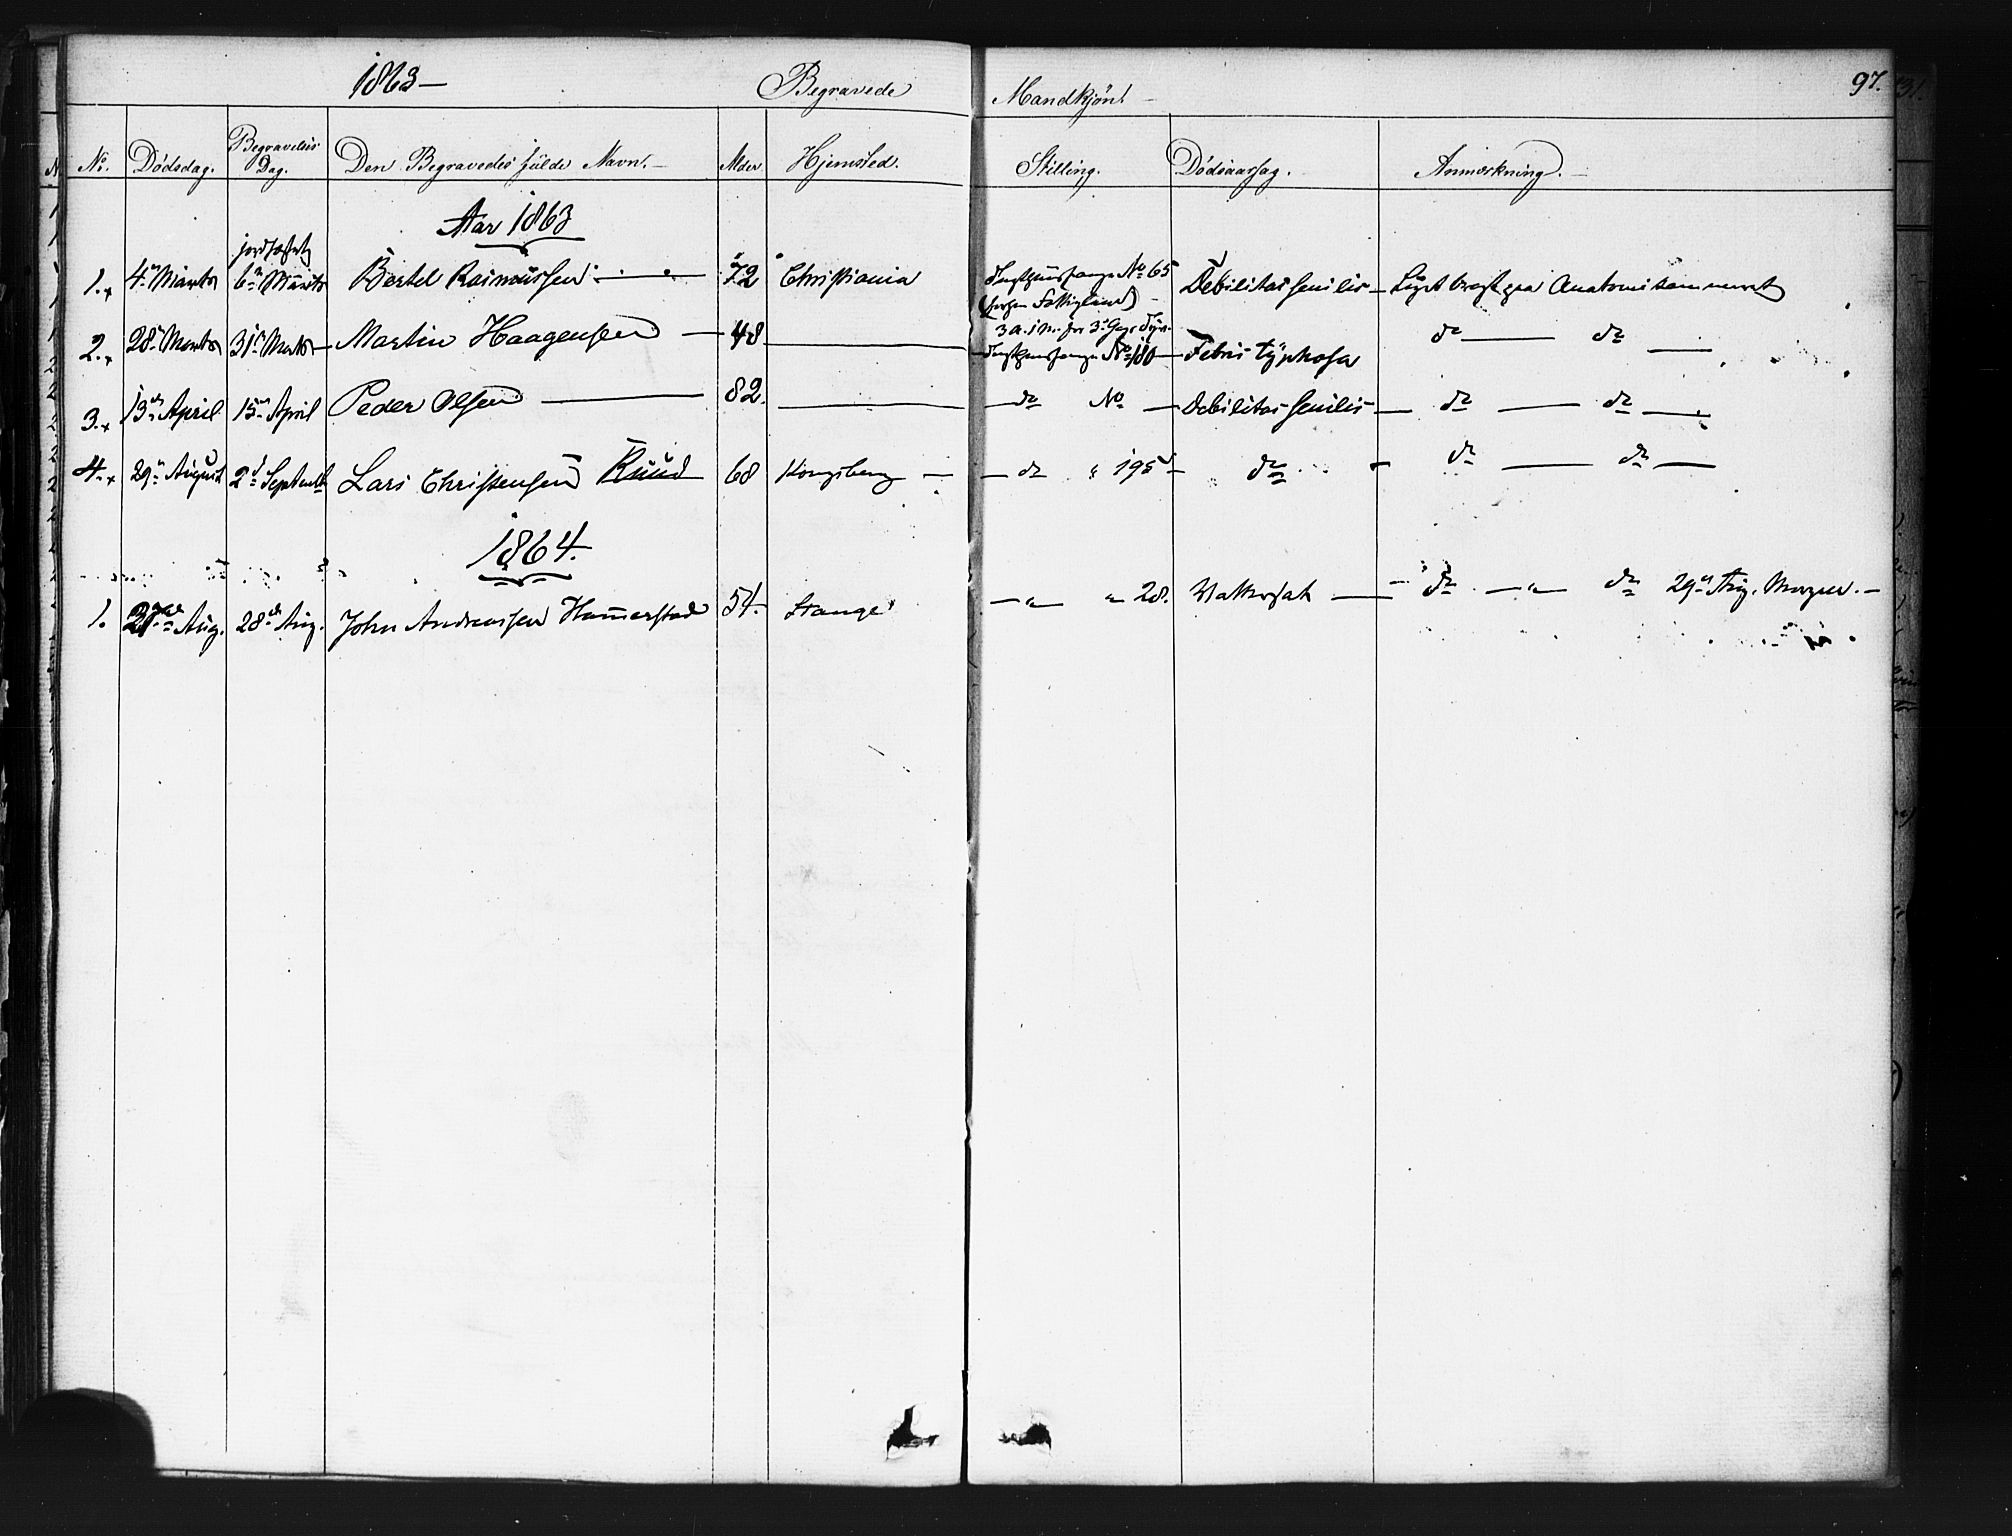 1863 —
Begravede
Mandkjön.
97.
No. Dödsdag. Begravelses Dag. Den Begravedes fulde Navn. — Alder Hjemsted. Stilling. Dödsaarsag. Anmærkning. —
Aar 1863
jordfæstet
1. 4de Marts 6te Marts Bertel Rasmussen 72 Christiania No 65 Debilitas senilis — Liget bragt paa Anatomikammeret
2. 28de Marts 31te Marts — Martin Haagensen — 48 — No 180 — Febris typhosa do — do —
3. 13de April 15de April Peder Olsen — 82. — do No — Debilitas senilis — do — do —
4. 29de August 2d Septembr Lars Christensen Ruud 68 Kongsberg — — do " 195 — do — do — do —
1864.
1. 27de Aug. 28de Aug. John Andreassen Hammerstad 54. Stange — " — " 28. Vattersot — do — " — do 29de Aug. Morgen. —